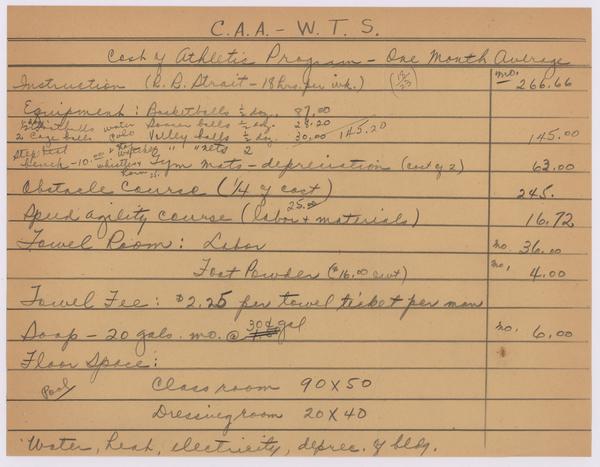 C.A.A. - W.T.S.
Cost of Athletic Program - One Month Average
Instruction (B. B. Strait - 18 hrs. per wk.) mo. 266.66
Equipment: Basketballs ½ doz. 87.00
water Soccer balls ½ doz. 28.20
2 Cage balls Polo Volley balls ½ doz. 30.00 145.20 145.00
" " nets 2
Step test
bench - 10.00 whistles Gym mats - depreciation (cost of 2) 63.00
Obstacle Course (1/4 of cost) 245.
25.00
Speed agility course (labor + materials) 16.72
Towel Room: Labor mo. 36.00
Foot Powder ($16.00 cwt) mo. 4.00
Towel Fee: $2.25 per towel ticket per man
Soap - 20 gals. mo. @ 30¢ gal mo. 6.00
Floor Space:
Pool Class room 90 X 50
Dressing room 20 X 40
Water, heat, electricity, deprec. of bldg.